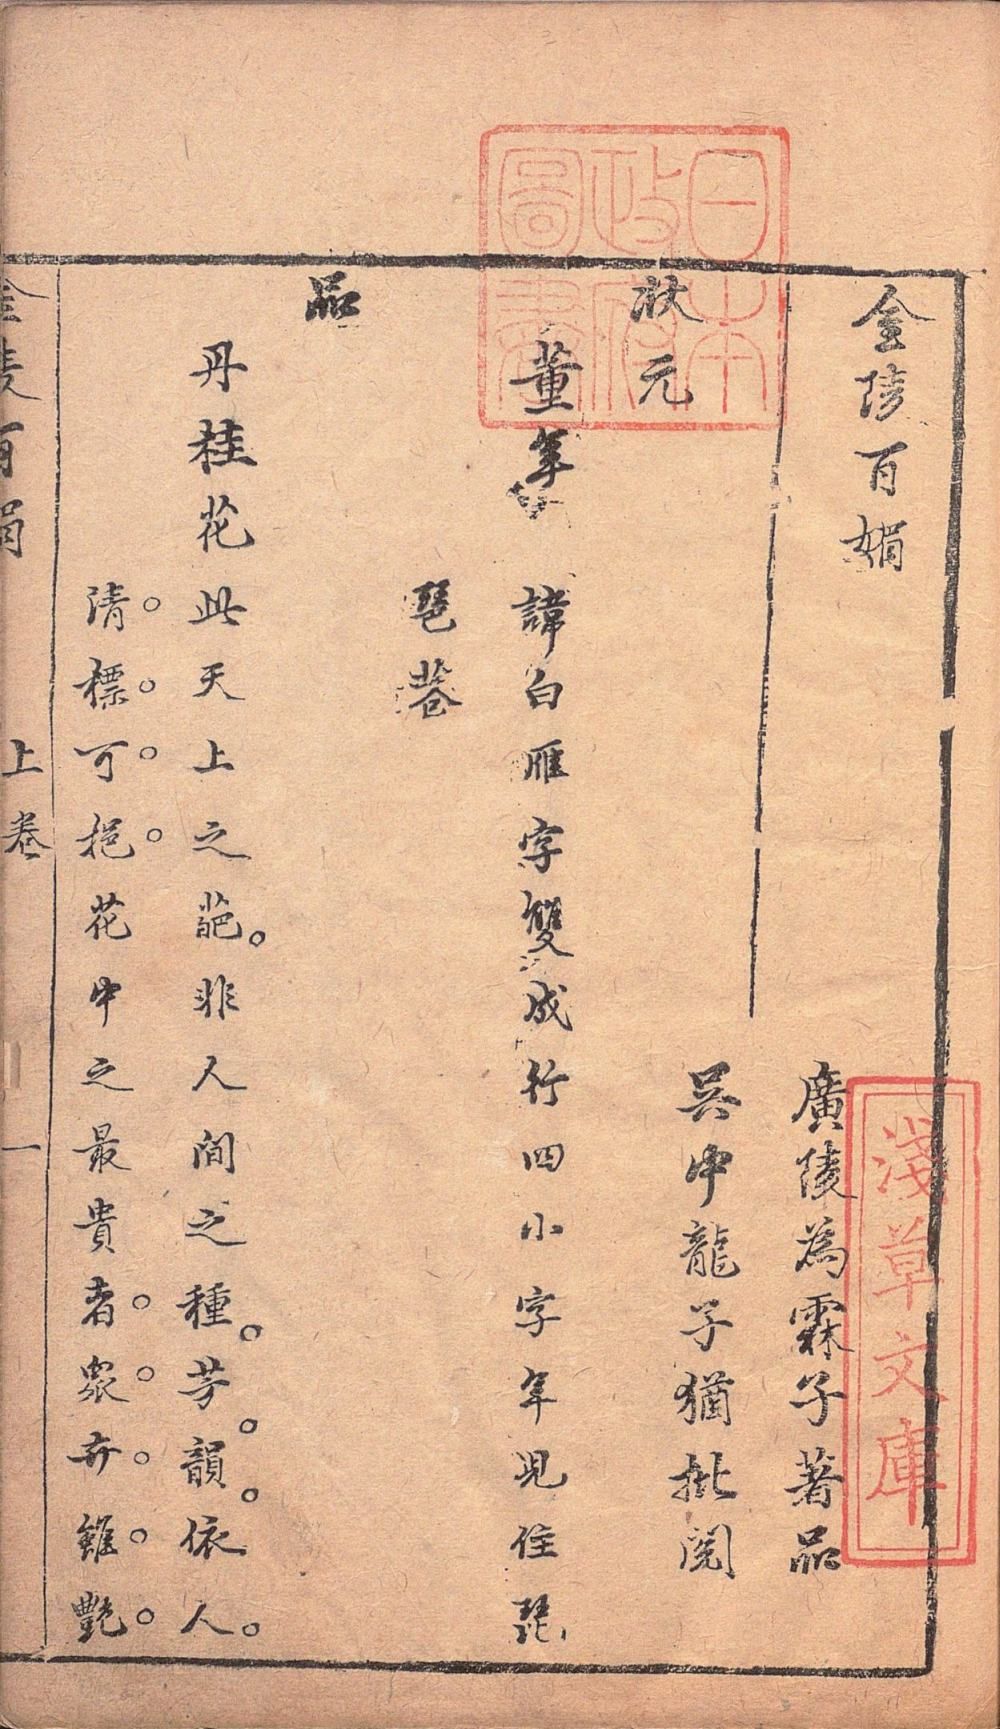 金陵百媚
廣陵為霖子著品
吳中龍子猶批閱
狀元
董年
諱白雁字雙成行四小字年兒住琵
琶巷
品
丹桂花此天上之葩非人間之種芳韻依人
清標可挹花中之最貴者衆卉雖艷
金陵百媚 上卷 一
日本
政府
圖書
淺草文庫